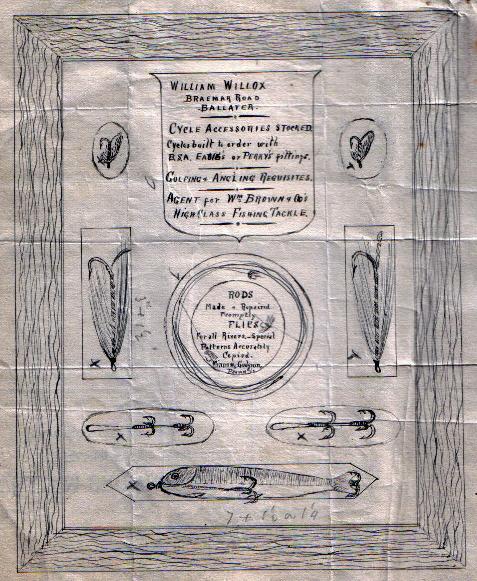 WILLIAM WILLOX
BRAEMAR ROAD
BALLATER.
CYCLE ACCESSORIES STOCKED.
Cycles built to order with
B.S.A. EADIE'S or PERRY'S fittings.
GOLFING & ANGLING REQUISITES.
AGENT for WM BROWN & Co's
HIGH CLASS FISHING TACKLE.
RODS
Made & Repaired
Promptly
FLIES
For all Rivers - Special
Patterns Accurately
Copied.